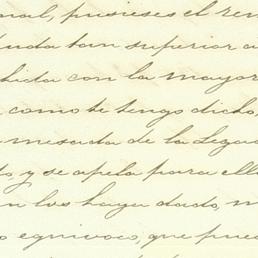 nal, pusieses el rem
duda tan superior a
bida con la mayor
como te tengo dicho,
mesada de la Lega
to, y se apela para ell
n los haya dado, m
o equivoco, que pue